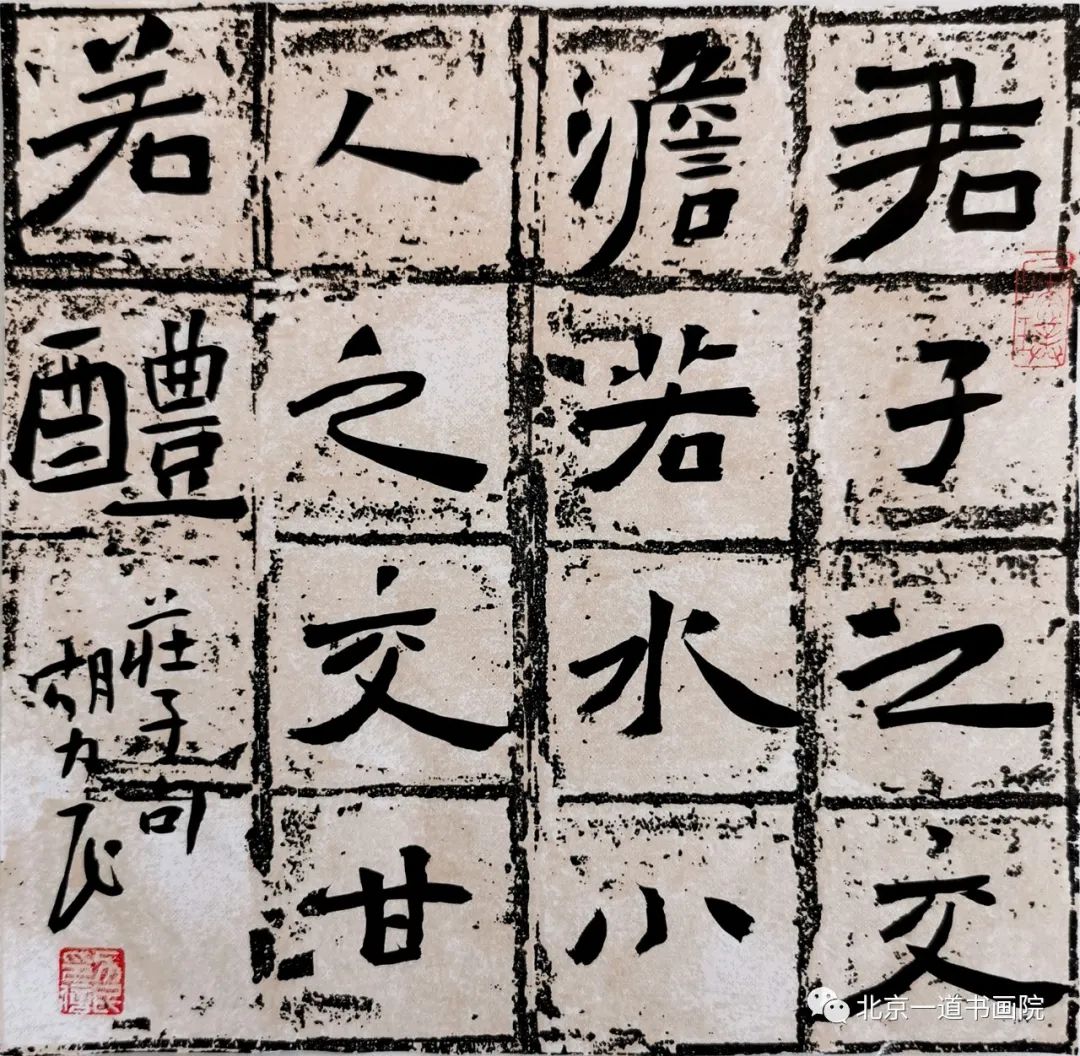 君子之交
澹若水小
人之交甘
若醴
莊子句
胡
北京一道书画院